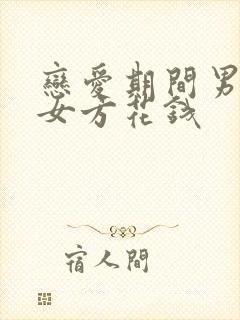 戀愛期間男
女方花錢
宿人間